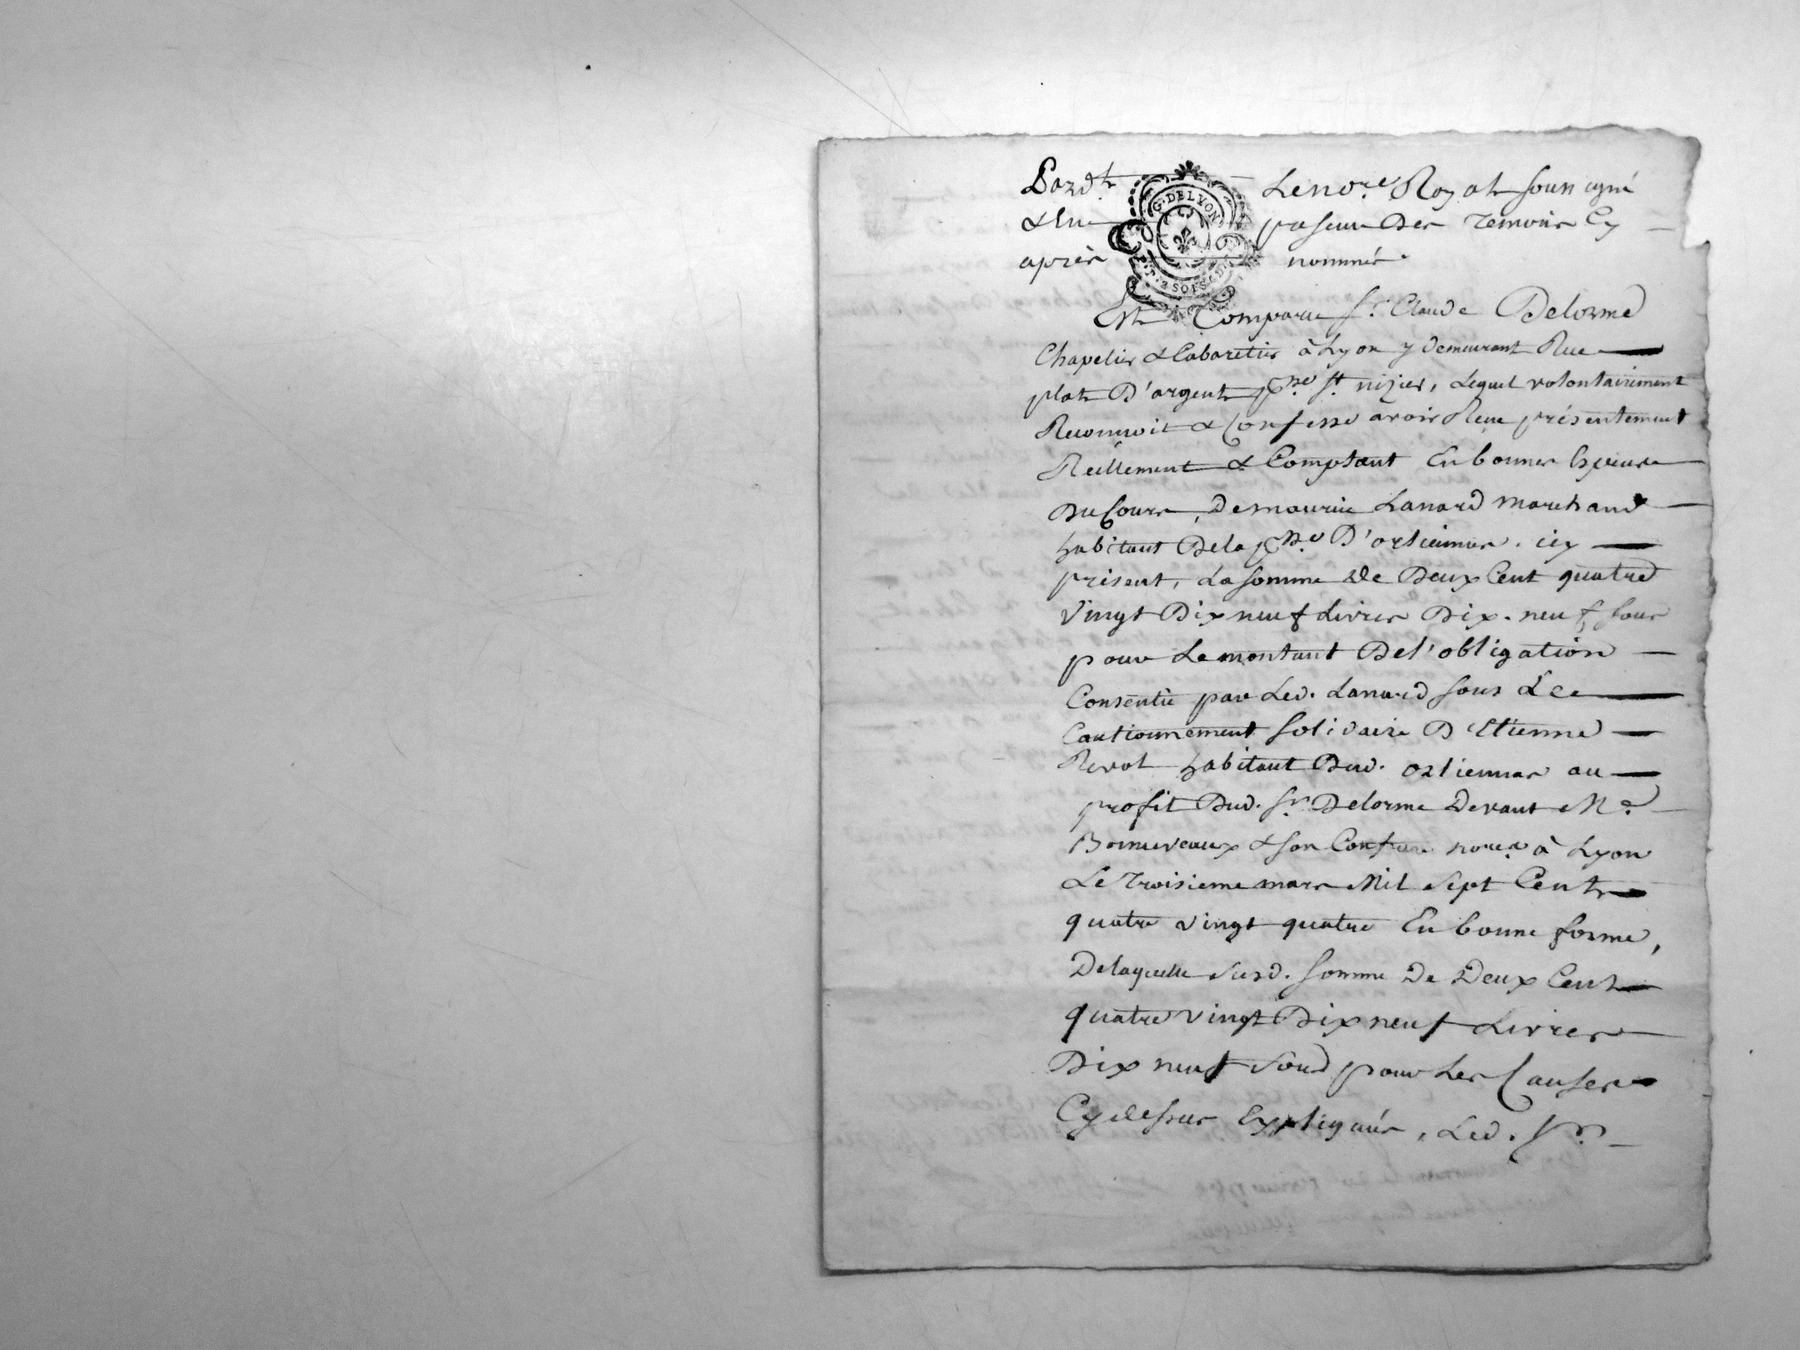 Pardt Le nore Royal soussigné
& En presence Des temoins Cy
après nommés.
G. DE LYON
P. P. 2 SOLS 4 D.
Est Comparu sr. Claude Delorme
Chapelier & Cabaretier à Lyon y demeurant Rue
plat D'argent psse st. nizier, Lequel volontairement
Reconnoit & Confesse avoir Reçu présentement
Réellement & Comptant En bonnes Especes
Du Cours, De maurice Lanard marchand
habitant De la psse D'orlienas. icy
présent, La somme De Deux Cent quatre
vingt Dix neuf Livres Dix-neuf sous
pour Le montant De l'obligation
Consentie par Led. Lanard sous Le
Cautionnement solidaire D'Etienne
Revol habitant Dud. orlienas au
profit Dud. sr. Delorme Devant Me.
Bonnevaux & son Confrere nores à Lyon
Le troisieme mars Mil sept Cent
quatre vingt quatre En bonne forme,
De laquelle susd. somme De Deux Cent
quatre vingt Dix neuf Livres
Dix neuf sous pour Les Causes
Cy dessus Expliquées, Led. sr.